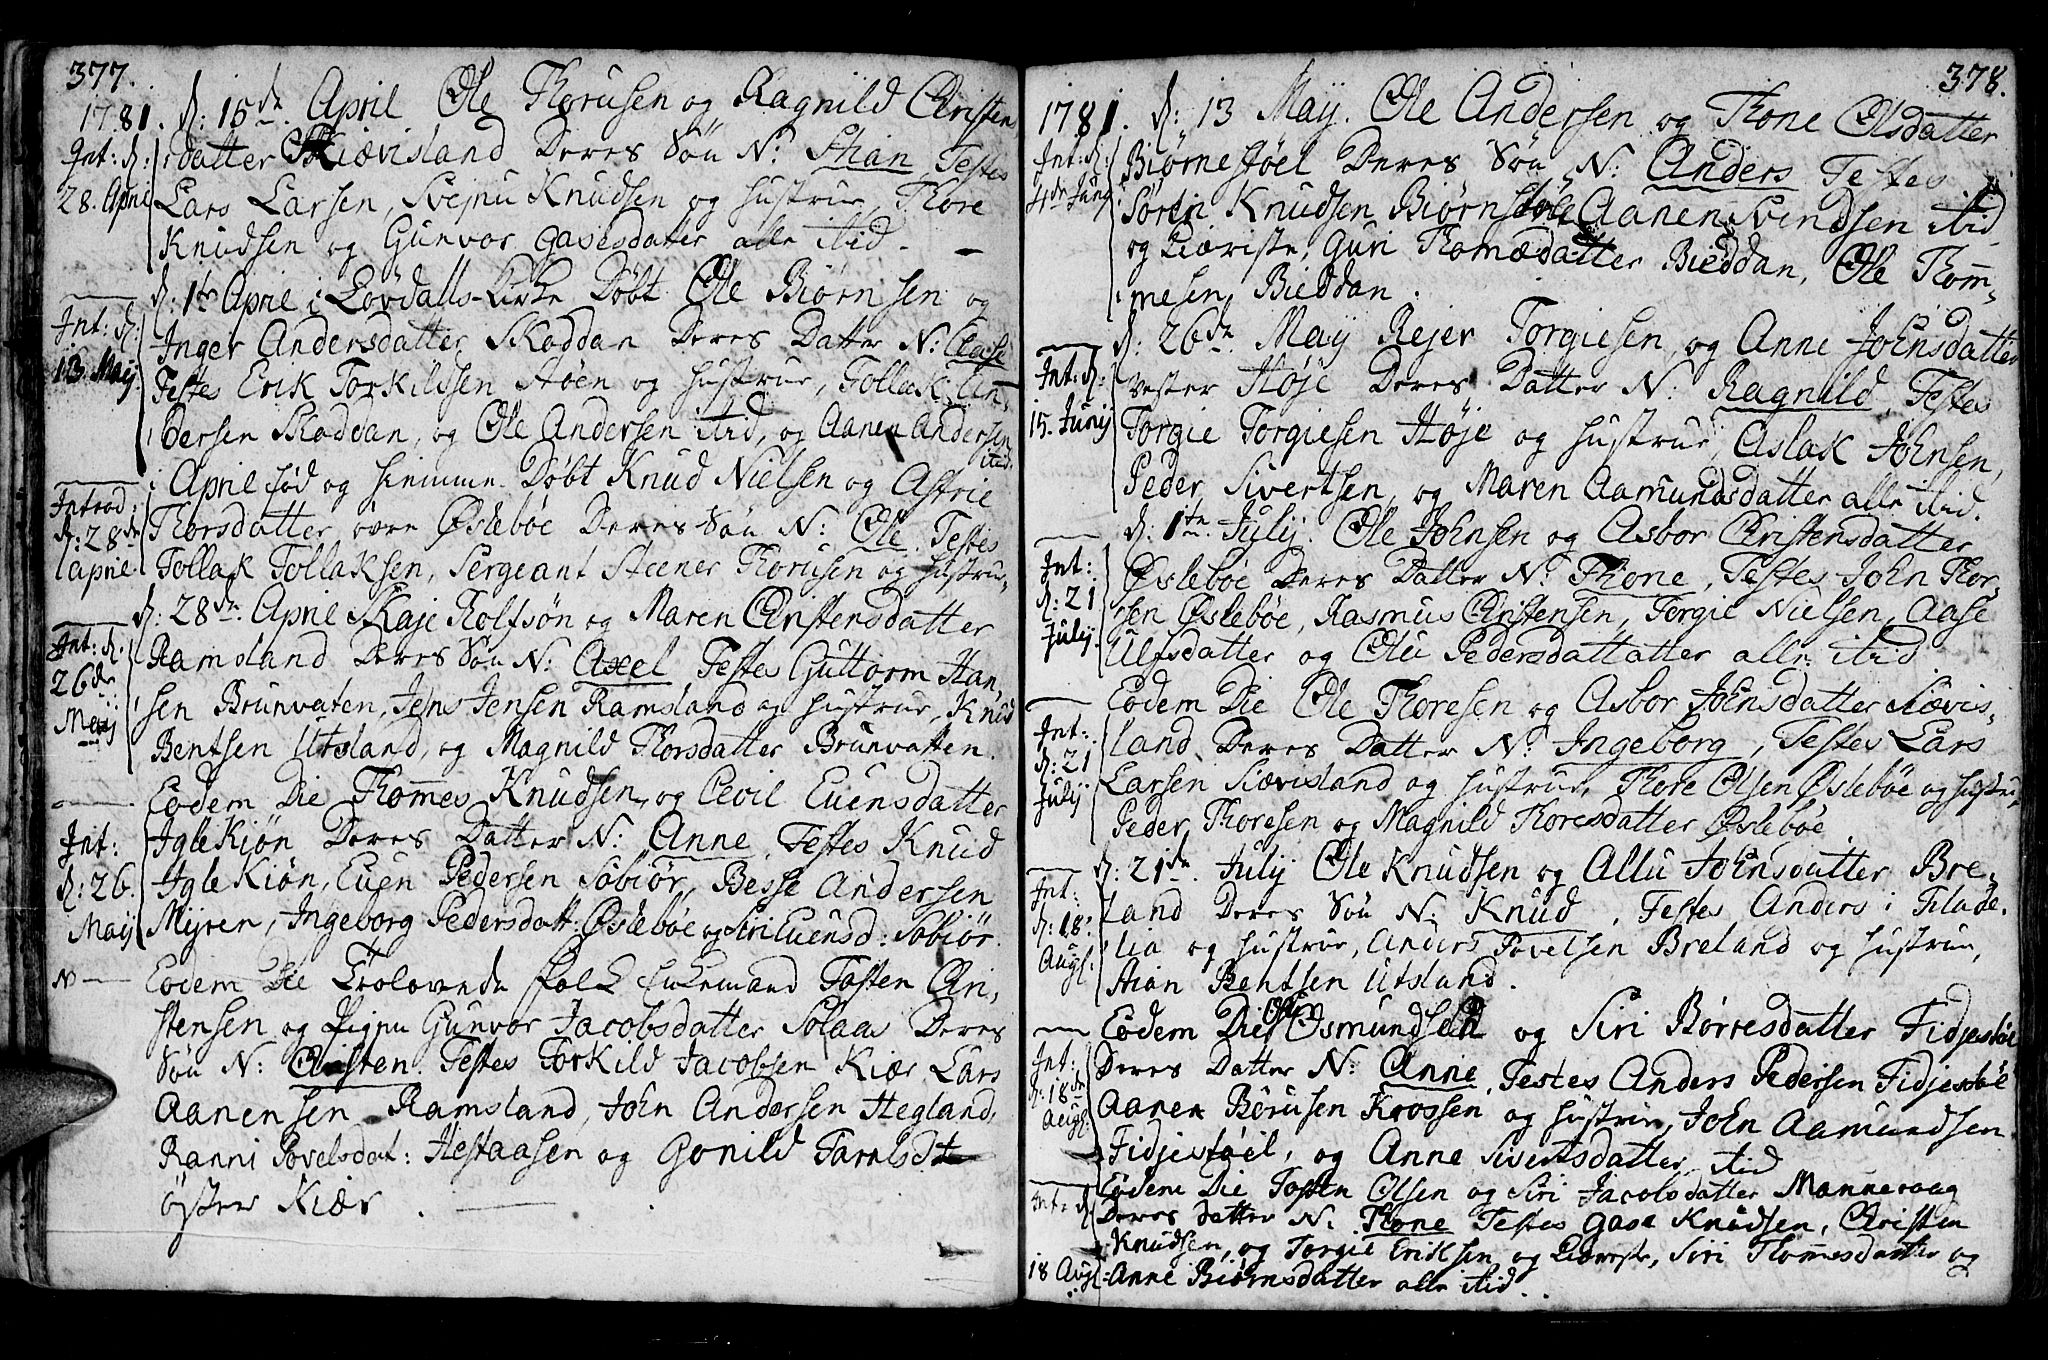 377.
1781. d: 15de April Ole Thorusen og Ragnild Christen
Int: d: datter Skiævisland Deres Søn N: Stian, Testes
28. April Lars Larsen, Svejnu Knudsen og Hustrue, Thore
Knudsen og Gunvor Gasesdatter alle itid.
d: 1te April i Løvdalls Kirke Døbt Ole Biørnsen og
Int: d: Inger Andersdatter Skoddan Deres Datter N: Aase
13 Maij. Testes Erik Torkildsen Støen og Hustrue, Tollak An-
dersen Skoddan, og Ole Andersen itid, og Aanen Andersen
itid.
i April fød og hiemme Døbt Knud Nielsen og Astrie
Introd: Thorsdatter øvre Øslebøe Deres Søn N: Ole, Testes
d: 28de apne Tollak Tollaksen, Sergeant Steener Thorusen og Hustrue
d: 28de April Skaje Rolfsøn og Maren Christensdatter
Int: d. Ramsland Deres Søn N: Axel Testes Guttorm Han,
26de sen Brunvaten, Jens Jensen Ramsland og Hustrue, Knud
Maij Bentsen Utsland, og Magnild Thorsdatter Brunvatten.
Eodem Die Thommes Knudsen, og Cevil Euensdatter
Int: IgleKiøn Deres Datter N: Anne, Testes Knud
d: 26. IgleKiøn, Euen Pedersen Søbiør, Besse Andersen
Maij Myren, Ingeborg Pedersdatt: Øslebøe og Siri Euensd: Søbiør.
N Eodem Die Trolovede Folk Enkemand Tosten Cri,
stensen og Pigen Gunvor Jacobsdatter Solaas Deres
Søn N: Christen. Testes Torkild Jacobsen Kiær Lars
Aanensen Ramsland, John Andersen Hegland,
Ranni Povelsdat: Hestaasen og Gonild
øster Kiær.
378.
1781. d: 13 Maij. Ole Andersen og Thone Olsdatter
Int: d: Biørnestøel Deres Søn N: Anders Testes
4de Junij Søren Knudsen Biørnstøle Aanen Svendsen itid
og Kiæriste, Guri Thomædatter Bieddan, Ole Thom-
mesen, Bieddan.
d: 26de Maij Rejer Torgiesen, og Anne Johnsdatter
Int: d: vester Høje Deres Datter N: Ragnild, Testes
15. Junij Torgie Torgiesen Høje og Hustrue, Aslak Johnsen,
Peder Sivertsen, og Maren Aamundsdatter alle itid.
d: 1te Julij. Ole Johnsen og Asbor Christensdatter
Int: Øslebøe Deres Datter N: Thone, Testes John Thor,
d: 21 sen Øslebøe, Rasmus Christensen, Torgie Nielsen, Aase
Julij. Ulfsdatter og Olu Pedersdattatter alle itid
Eodem Die Ole Thoresen og Asbor Johnsdatter Siævis,
Int: land Deres Datter N: Ingeborg, Testes Lars
d: 21 Larsen Siævisland og Hustrue, Thore Olsen Øslebøe og Hustru,
Julij Peder Thoresen og Magnild Thoresdatter Øslebøe.
d: 21de Julij Ole Knudsen og Allu Johnsdatter Bre,
Int: land Deres Søn N: Knud, Testes Anders i Filade,
d: 18: lia og Hustrue, Anders Povelsen Breland og Hustrue,
Augl: Stian Bentsen Utsland.
Eodem Die Ole Osmundsen og Siri Børresdatter Fidjestøel
Int: Deres Datter N: Anne, Testes Anders Pedersen Fidjestøel
d: 18de Aanen Børusen Krossen og Hustrue, John Aamundsen
Augl: Fidjestøeil, og Anne Sivertsdatter, itid
Eodem Die Tosten Olsen og Siri Jacobsdatter Manneraag
Int: d: Deres datter N: Thone Testes Gase Knudsen, Christen
Knudsen, og Torgie Eriksen og Kiæreste, Siri Thommesdatter og
18 Augl: Anne Biørnsdatter alle itid.